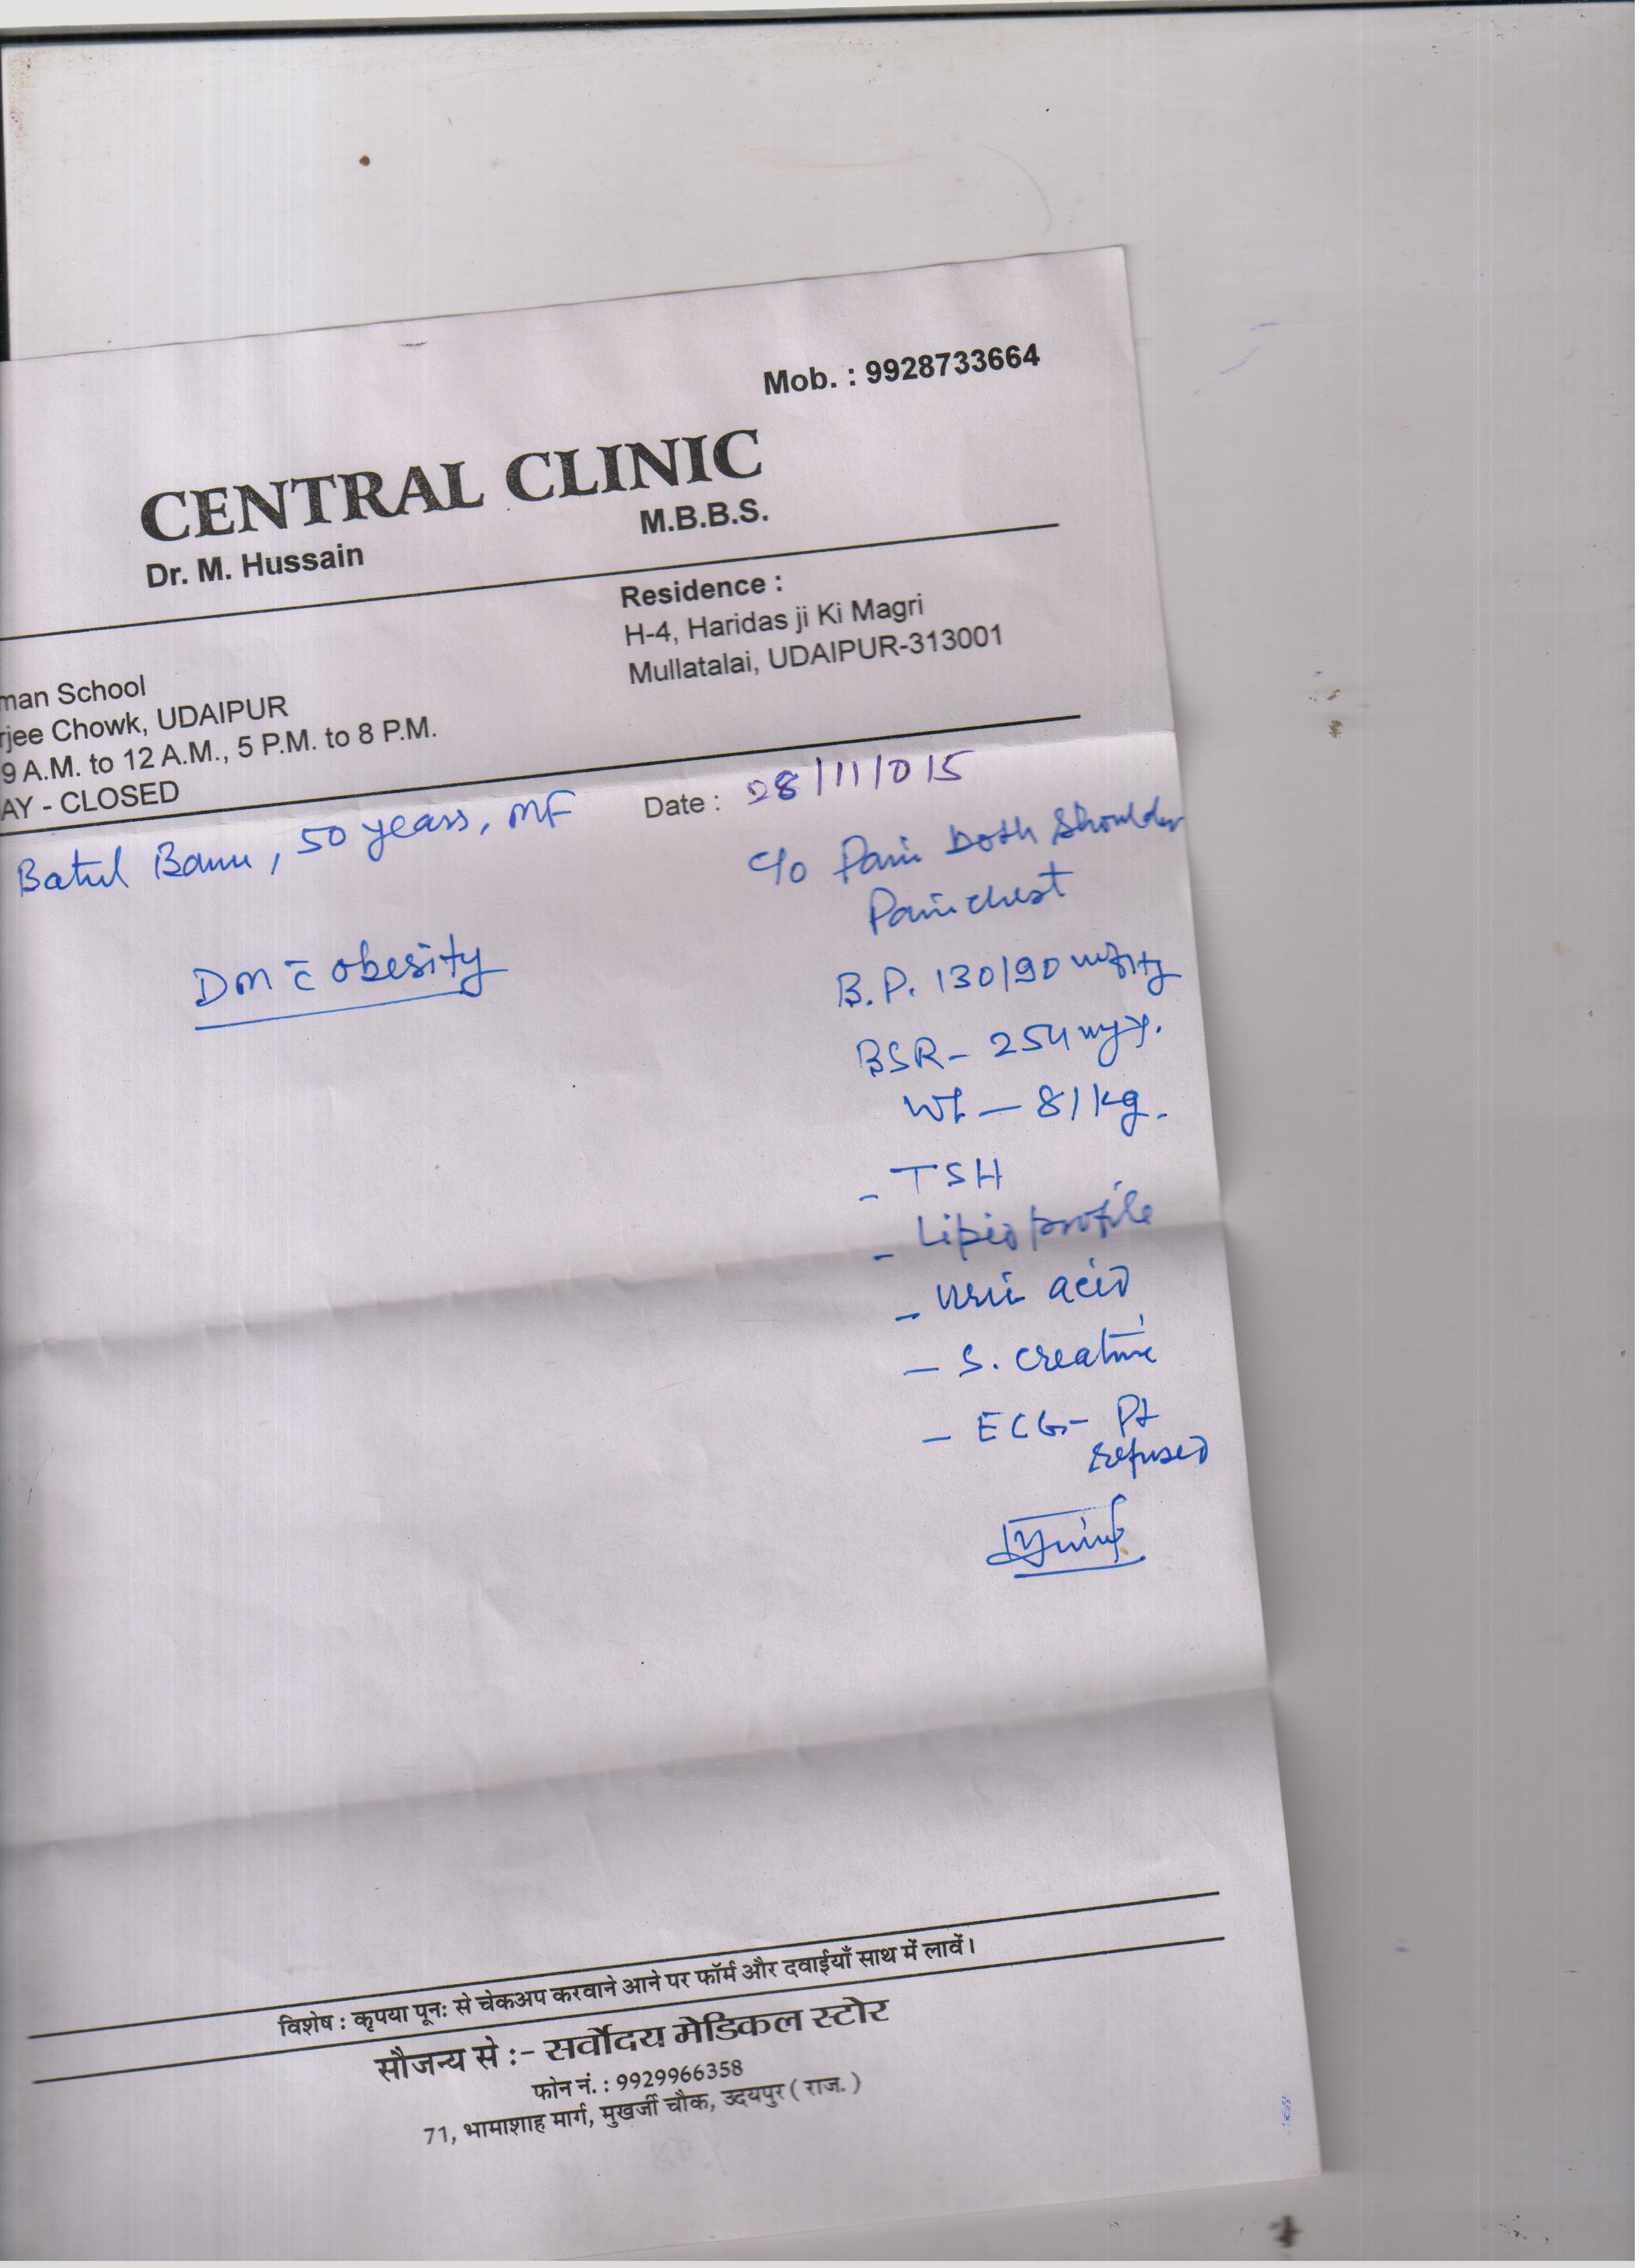 Mob. : 9928733664
CENTRAL CLINIC
Dr. M. Hussain
M.B.B.S.
Residence :
H-4, Haridas ji Ki Magri
Mullatalai, UDAIPUR-313001
man School
rjee Chowk, UDAIPUR
9 A.M. to 12 A.M., 5 P.M. to 8 P.M.
AY - CLOSED
Date : 28/11/015
Batul Banu, 50 years, MF
C/o Pain both Shoulder
Pain chest
DM c̄ obesity
B.P. 130/90 mmHg
BSR - 254 mg%.
Wt - 81 kg.
- TSH
- Lipid profile
- Uric acid
- S. creatinine
- ECG - Pt
refused
विशेष : कृपया पूनः से चेकअप करवाने आने पर फॉर्म और दवाईयाँ साथ में लावें।
सौजन्य से :- सर्वोदय मेडिकल स्टोर
फोन नं. : 9929966358
71, भामाशाह मार्ग, मुखर्जी चौक, उदयपुर ( राज. )